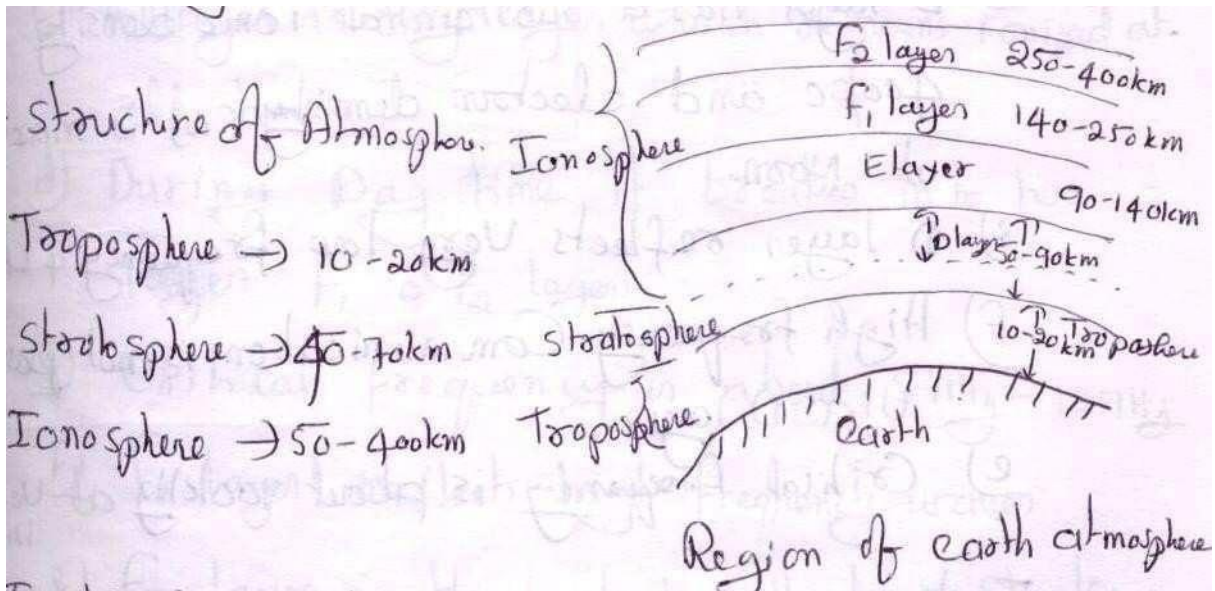 Structure of Atmosphere.
Troposphere → 10-20km
Stratosphere → 40-70km
Ionosphere → 50-400km
Ionosphere
F2 layer 250-400km
F1 layer 140-250km
E layer
90-140km
D layer 50-90km
Stratosphere
10-20km Troposhere
Troposphere
earth
Region of earth atmosphere